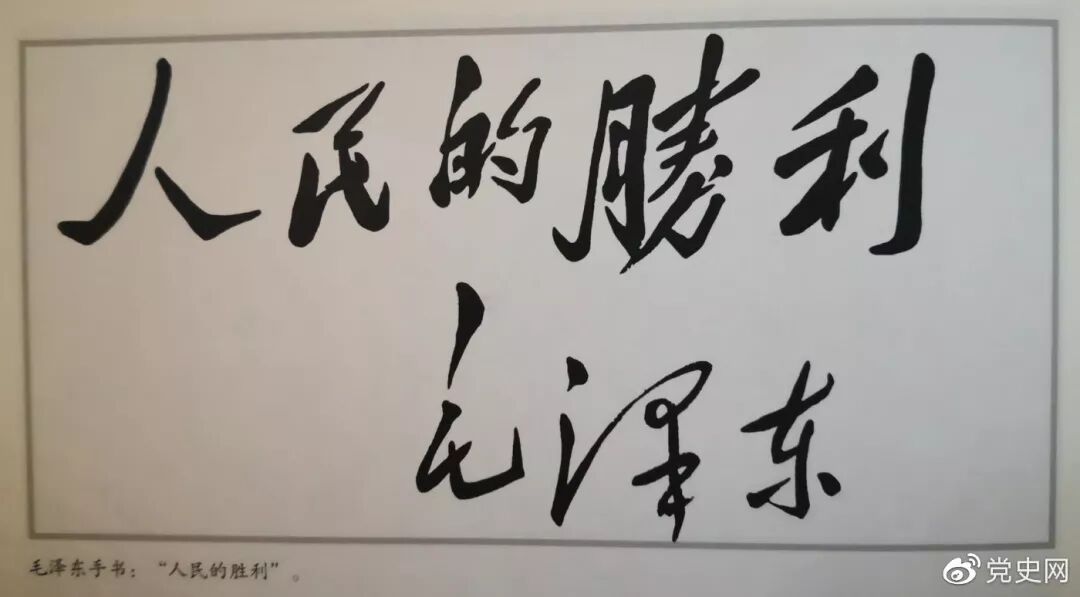 人民的勝利
毛泽东
毛泽东手书：“人民的胜利”。
党史网